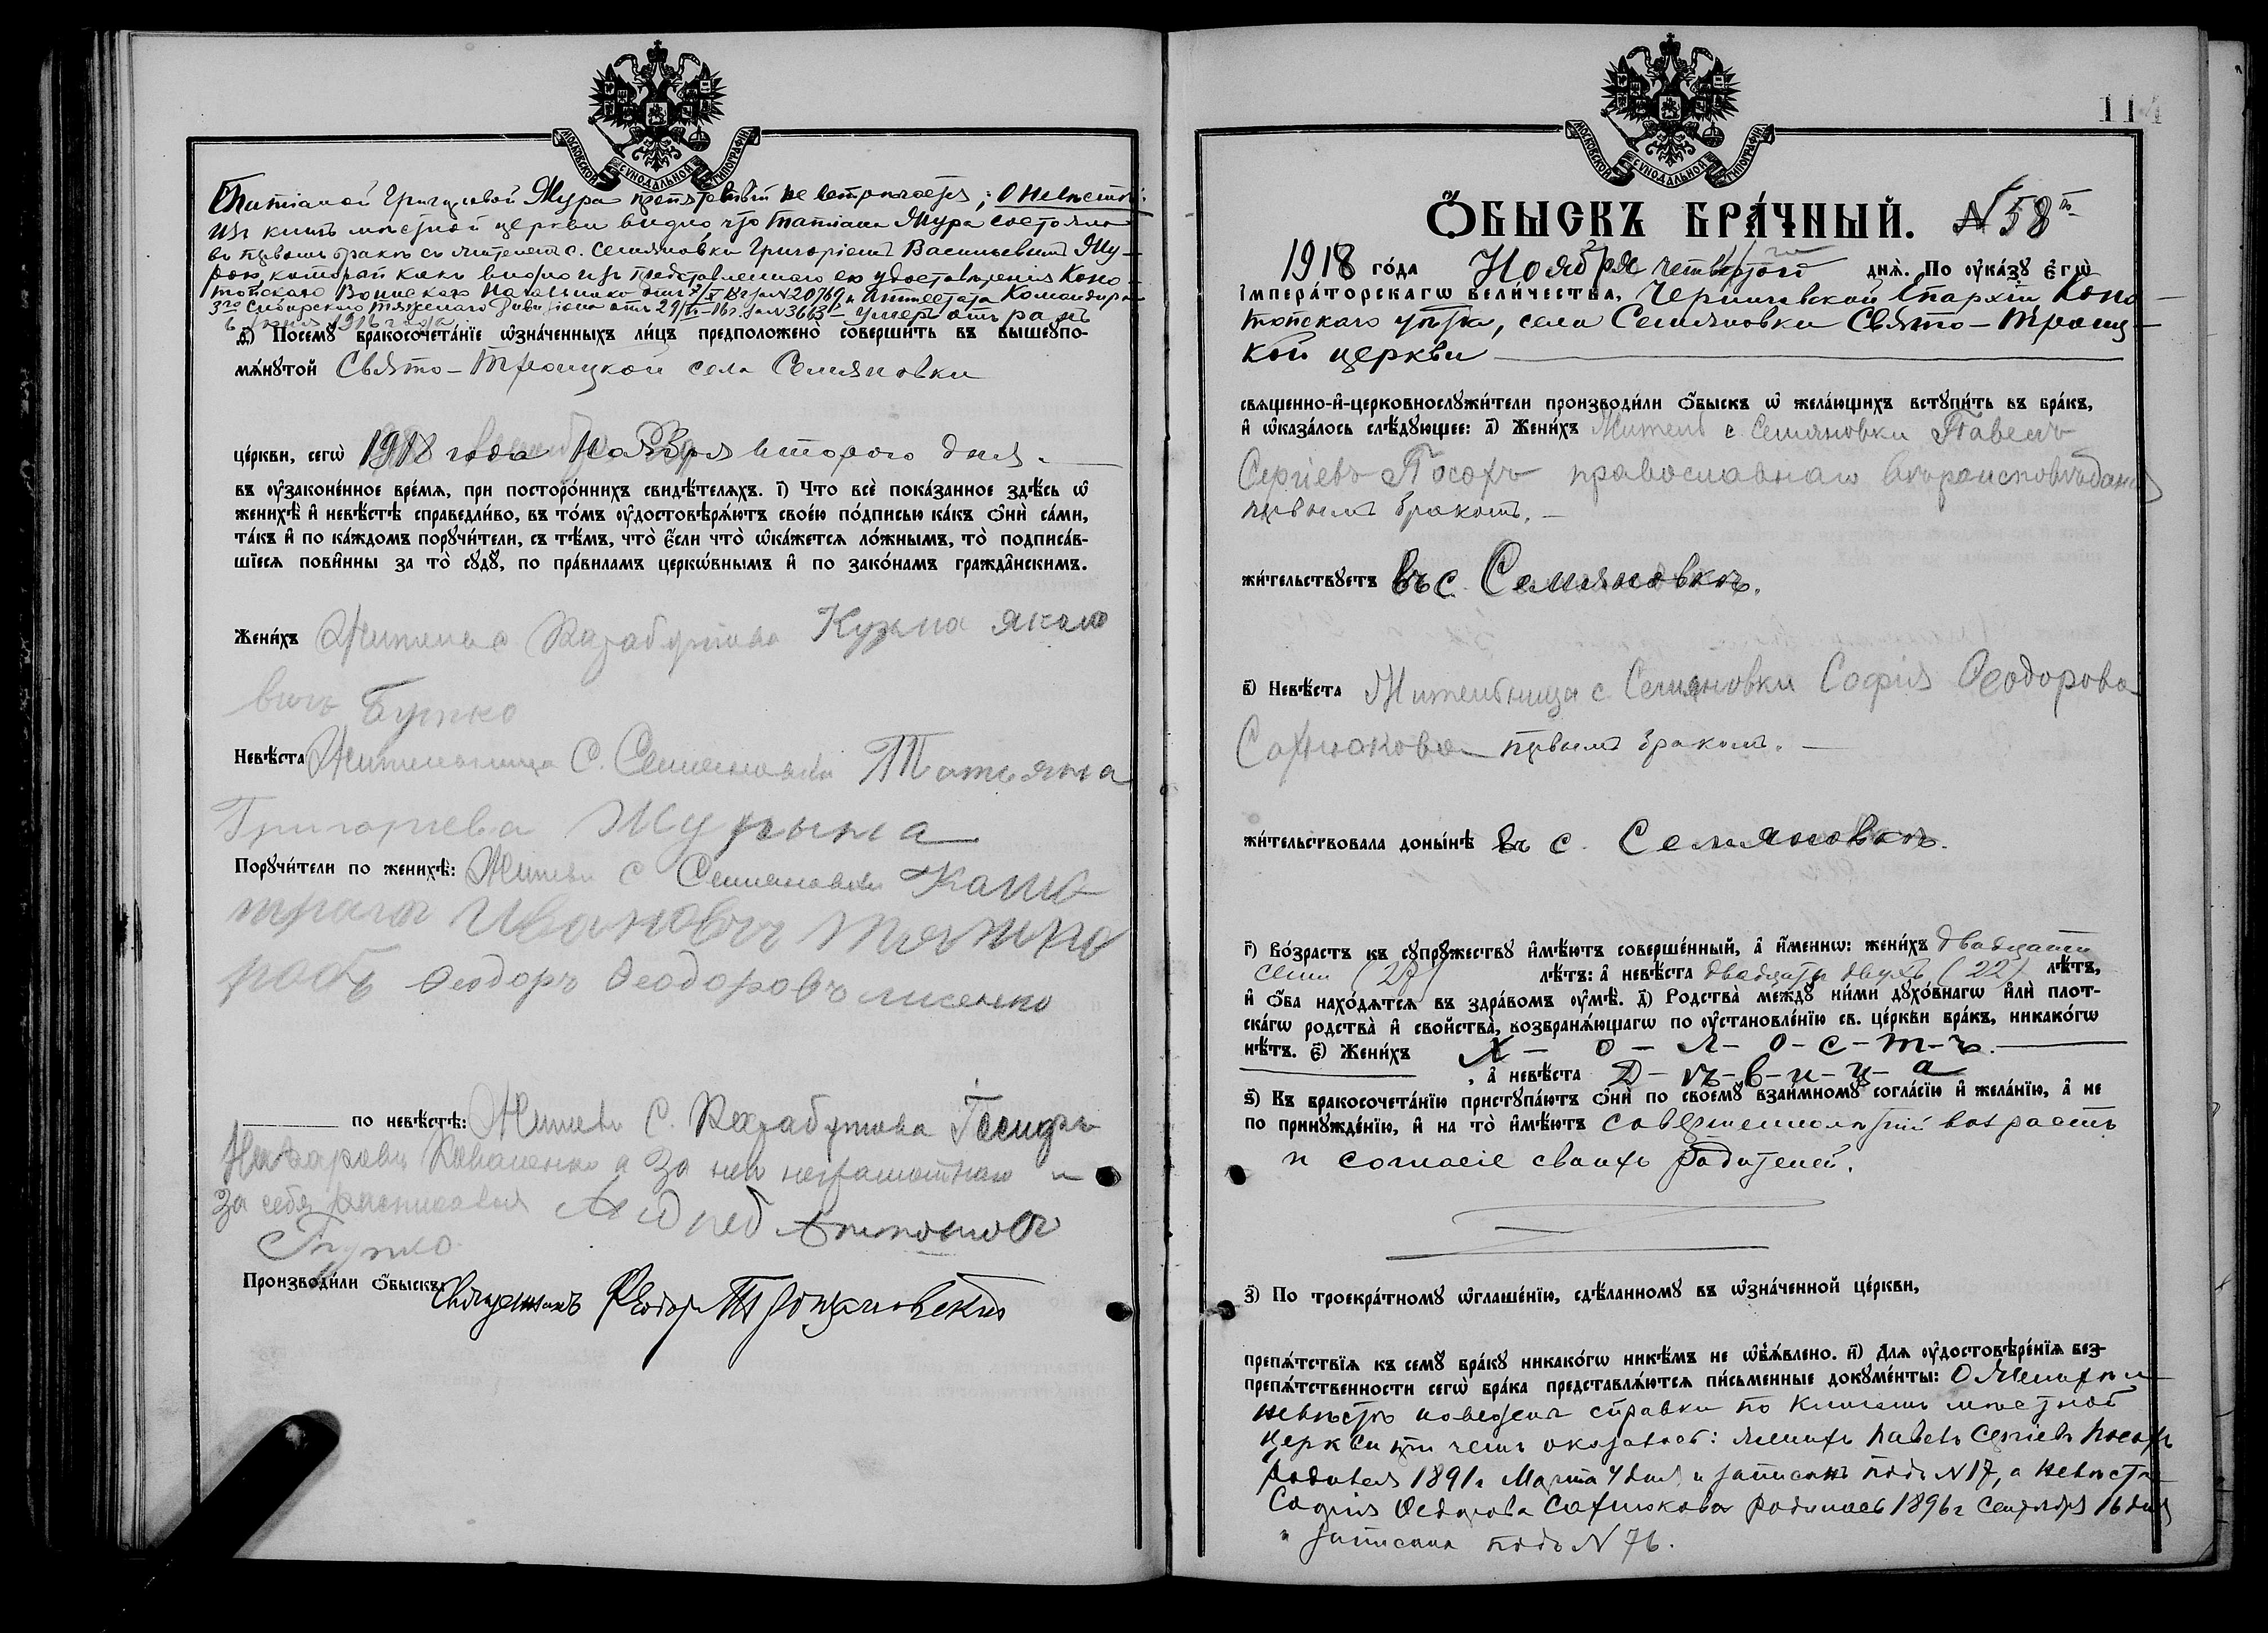 МОСКОВСКОЙ СѴНОДАЛЬНОЙ ТИПОГРАФІИ
Татіаной Григорьевой Жура препятствий не встречается; О невесте:
Из книг местной церкви видно, что Татіана Жура состояла
въ первомъ браке съ жителемъ с. Семяновки Григоріемъ Васильевымъ Жу-
рою, который как видно изъ представленнаго ею удостоверенія Коно-
топскаго Воинскаго Начальника № 20769 и Аттестата Командира
3го Сибирскаго Тяжелаго Дивизіона отъ № 3663 – умеръ отъ ранъ
6 1916 года
д҃) Посемꙋ̀ бракосочета́нїе ѡ҆зна́ченныхъ ли́цъ предположено̀ соверши́ть въ вышеꙋпо-
мѧ́нꙋтой Свято-Троицкой села Семяновки
це́ркви, сегѡ̀ 1918 года Ноября второго дня.
въ ᲂу҆зако́ненное вре́мѧ, при посторо́ннихъ свидѣ́телѧхъ. і҃) Что всѐ пока́занное здѣ́сь ѡ҆
женихѣ̀ и҆ невѣ́стѣ справедли́во, въ то́мъ ᲂу҆достовѣрѧ́ютъ свое́ю по́дписью ка́къ ѻ҆нѝ са́ми,
та́къ и҆ по ка́ждомъ порꙋчи́тели, съ тѣ́мъ, что̀ є҆́сли что̀ ѡ҆ка́жется ло́жнымъ, то̀ подписа́в-
шїесѧ пови́нны за то̀ сꙋдꙋ̀, по пра́виламъ церко́внымъ и҆ по зако́намъ гражда́нскимъ.
Жени́хъ Житель с. Карабутова Кузьма Яковле
вичъ Бутко
Невѣ́ста Жительница С. Семяновки Татьяна
Григорьева Журына
Порꙋчи́тели по женихѣ̀: Жители с Семяновки
Ивановъ
Феодоръ Феодоровъ Лисенко
по невѣ́стѣ: Жители С. Карабутова
Коваленко а за него неграмотнаго и
за себя росписался Андрей Антоновъ
Бутко
Производи́ли ѻ҆́быскъ: Священникъ Феодоръ
114
МОСКОВСКОЙ СѴНОДАЛЬНОЙ ТИПОГРАФІИ
Ѻ҆́БЫСКЪ БРА́ЧНЫЙ. № 58й
1918 го́да Ноября четвертого днѧ̀. По ᲂу҆ка́зꙋ є҆гѡ̀
і҆мпера́торскагѡ вели́чества, Черниговской Епархіи Коно-
топскаго уезда, села Семяновки Свято-Троиц-
кой церкви
свѧще́нно-и҆-церковнослꙋжи́тели производи́ли ѻ҆́быскъ ѡ҆ жела́ющихъ встꙋпи́ть въ бра́къ,
и҆ ѡ҆каза́лось слѣ́дꙋющее: а҃) Жени́хъ Житель с. Семяновки Павелъ
Сергіевъ Посохъ православнаго вероисповеданія
первымъ бракомъ.
жи́тельствꙋетъ въ с. Семяновке.
в҃) Невѣ́ста Жительница с. Семяновки Софія Феодорова
Сахнюкова первымъ бракомъ.
жи́тельствовала доны́нѣ въ с. Семяновке.
г҃) Во́зрастъ къ сꙋпрꙋ́жествꙋ и҆мѣ́ютъ соверше́нный, а҆ и҆́менно: жени́хъ двадцати
семи (27) лѣ́тъ: а҆ невѣ́ста двадцати двухъ (22) лѣ́тъ,
и҆ ѻ҆́ба нахо́дѧтсѧ въ здра́вомъ ᲂу҆мѣ̀. д҃) Родства̀ междꙋ̀ ни́ми дꙋхо́внагѡ и҆лѝ плот-
ска́гѡ родства̀ и҆ сво́йства̀, возбранѧ́ющагѡ по ᲂу҆становле́нїю св. це́ркви бра́къ, никако́гѡ
нѣ́тъ. є҃) Жени́хъ Х-о-л-о-с-т-ъ.
, а҆ невѣ́ста Д-ѣ-в-и-ц-а
ѕ҃) Къ бракосочета́нїю пристꙋпа́ютъ ѻ҆нѝ по своемꙋ̀ взаи́мномꙋ согла́сїю и҆ жела́нїю, а҆ не
по принꙋжде́нїю, и҆ на то̀ и҆мѣ́ютъ совершеннолетній возрастъ
и согласіе своихъ родителей.
з҃) По троекра́тномꙋ ѡ҆глаше́нїю, сдѣ́ланномꙋ въ ѡ҆зна́ченной це́ркви,
препѧ́тствїѧ къ семꙋ̀ бра́кꙋ никако́гѡ никѣ́мъ не ѡ҆бъѧ́влено. и҃) Длѧ ᲂу҆достовѣре́нїѧ без-
препѧ́тственности сегѡ̀ бра́ка представлѧ́ютсѧ пи́сьменные докꙋме́нты: О женихе и
невесте наведены справки по книгамъ местной
церкви при чемъ оказалось: женихъ Павелъ Сергіевъ Посохъ
родился 1891 г. Марта 4 дня и записанъ подъ № 17, а невеста
Софія Федорова Сахнюкова родилась 1896 г Сентября 16 дня
и записана подъ № 76.